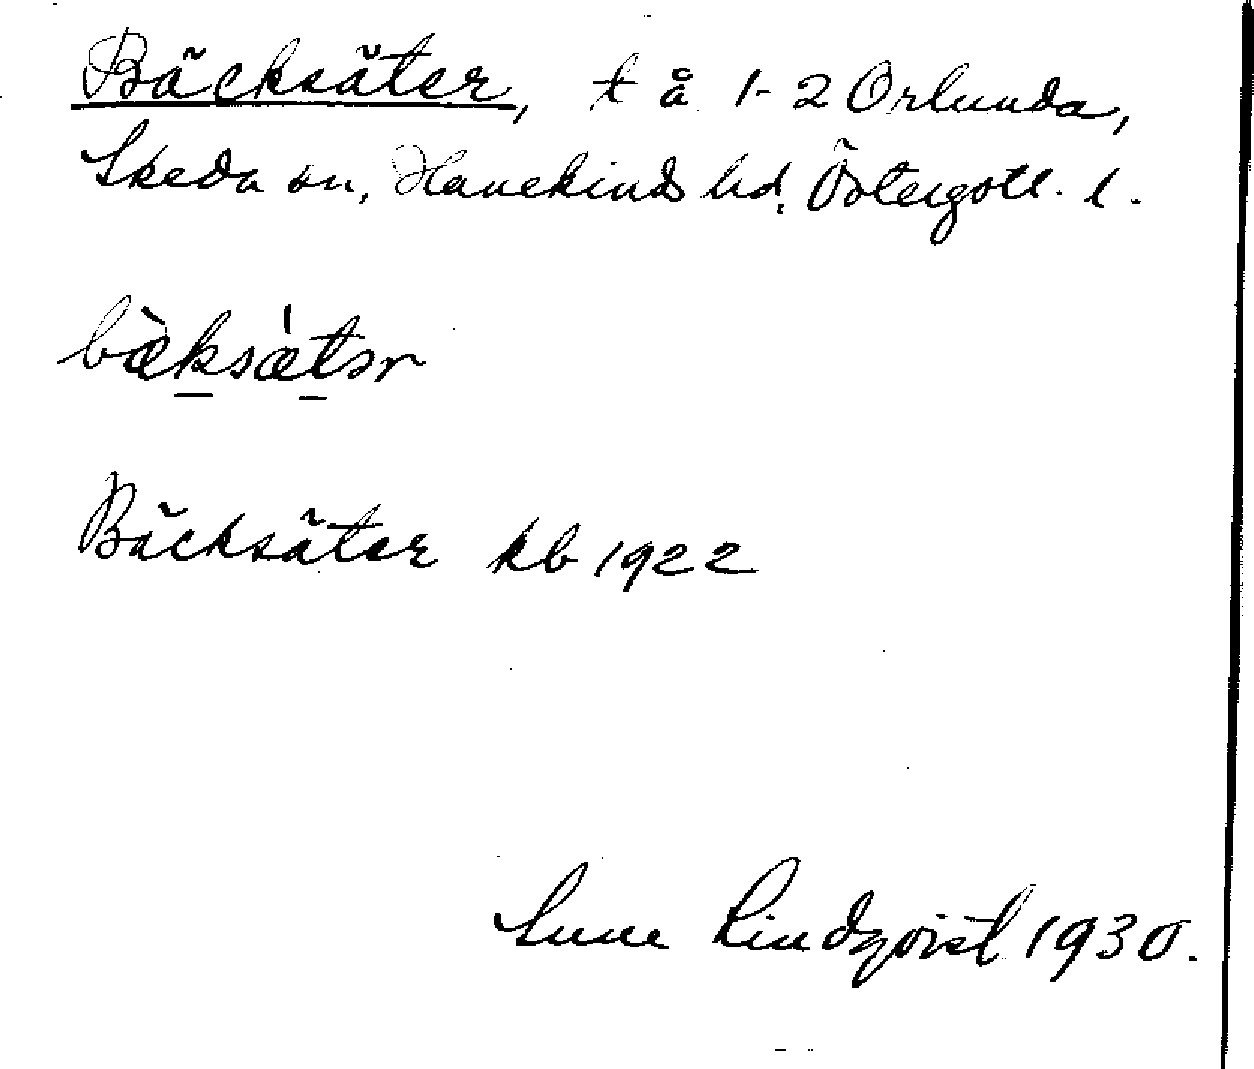 Bäcksäter, t å 1-2 Orlunda,
Skeda sn, Hanekinds hd. Östergötl. l.
bæ̀ksæ̍tər
Bäcksäter kb 1922
Sune Lindqvist 1930.